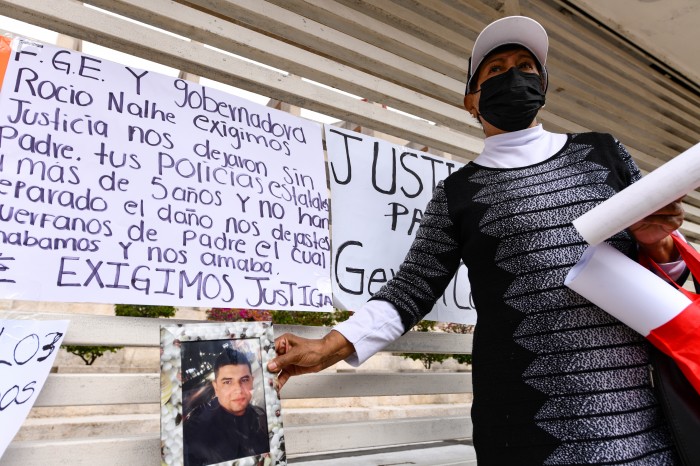 F.G.E. Y gobernadora
Rocio Nalhe exigimos
Justicia nos dejaron sin
Padre. tus Policias estatales
mas de 5 años y no han
reparado el daño nos dejastes
huerfanos de Padre el cual
amabamos y nos amaba.
EXIGIMOS JUSTICIA
JUST
PA
Ge
LOS